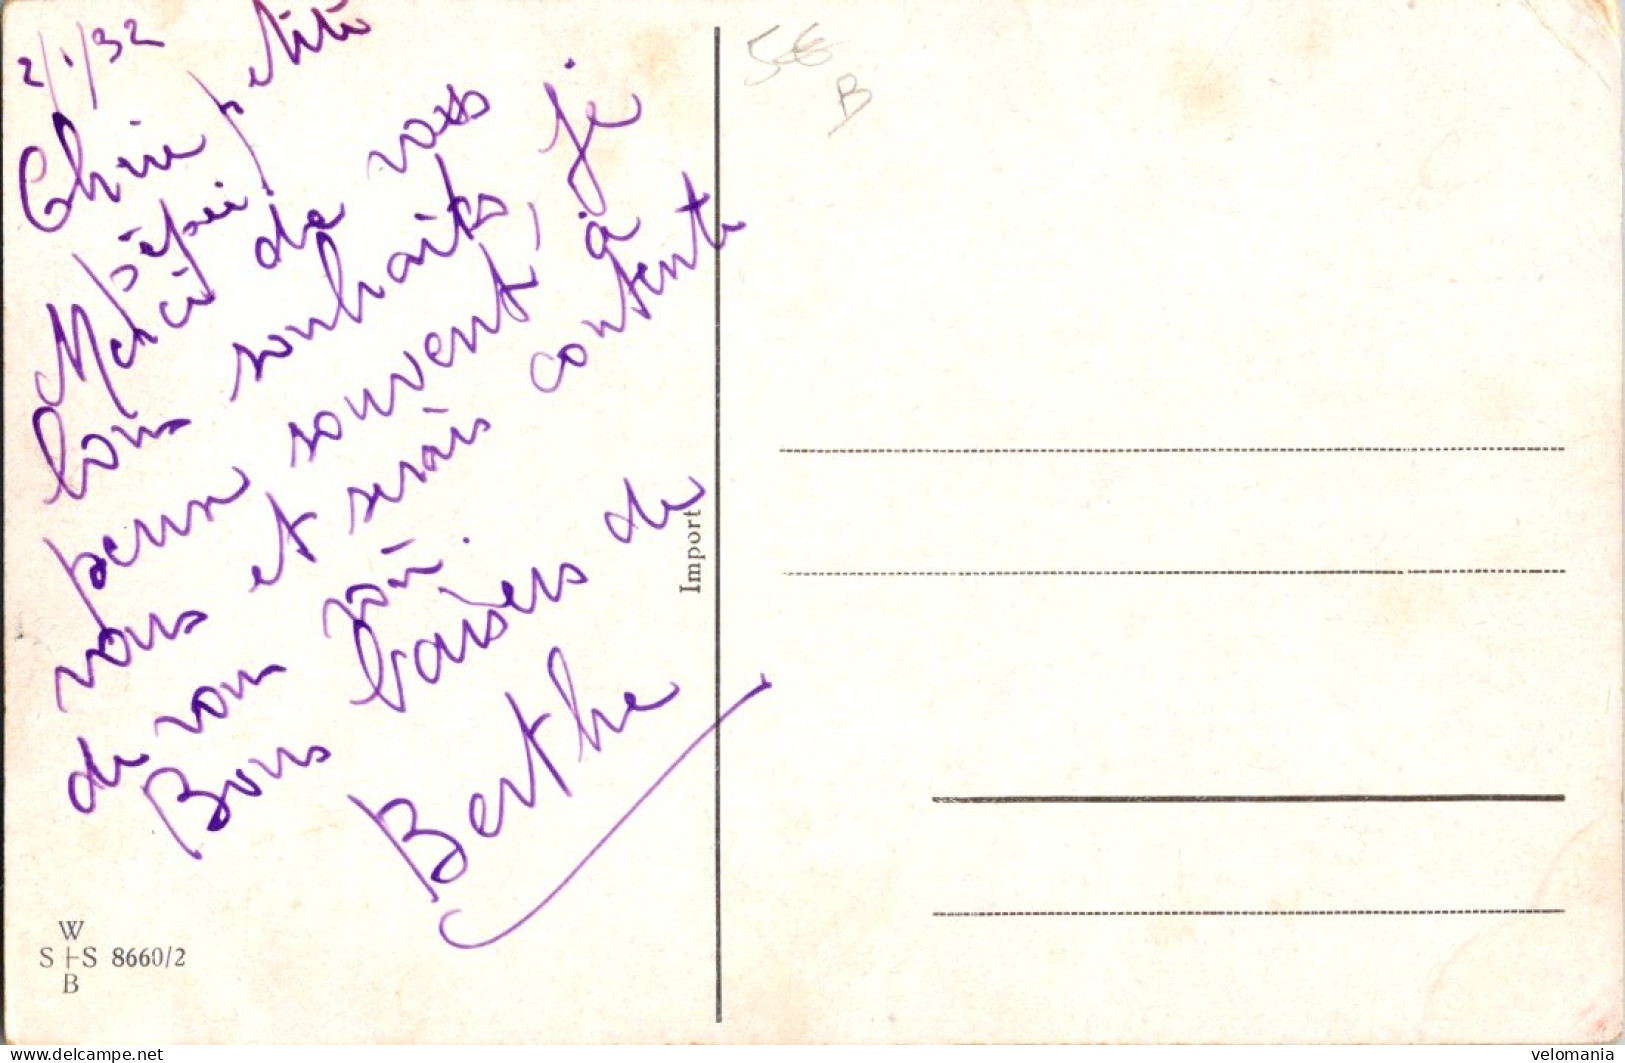 2/1/32
Chère petite
Pépée.
Merci de vos
bons souhaits, je
pense souvent à
vous et serais contente
de vous voir.
Bons baisers de
Berthe
Import
W
S+S 8660/2
B
5€
B
www.delcampe.net
velomania